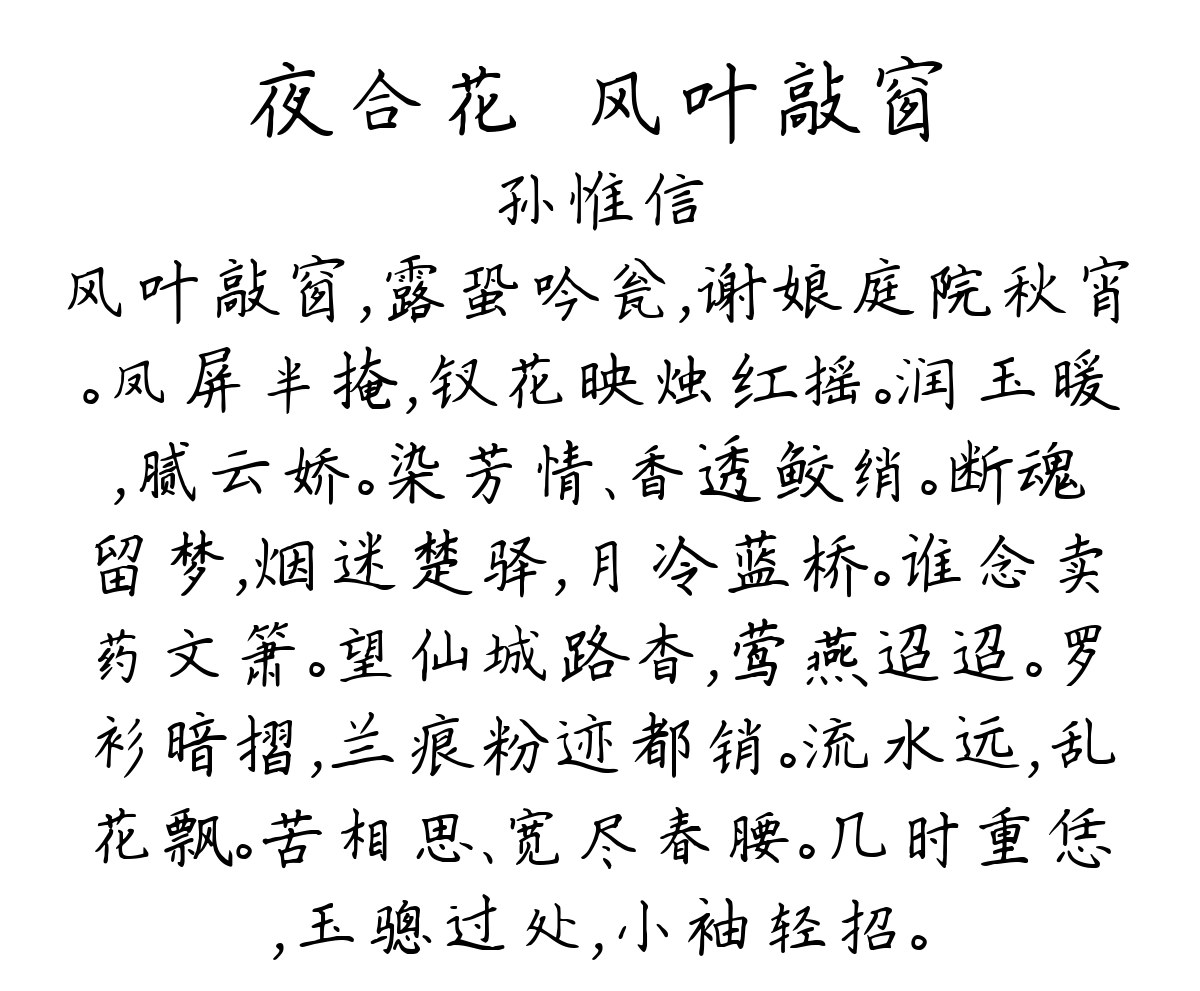 夜合花 风叶敲窗
孙惟信
风叶敲窗,露蛩吟甃,谢娘庭院秋宵
。凤屏半掩,钗花映烛红摇。润玉暖
,腻云娇。染芳情、香透鲛绡。断魂
留梦,烟迷楚驿,月冷蓝桥。谁念卖
药文箫。望仙城路杳,莺燕迢迢。罗
衫暗摺,兰痕粉迹都销。流水远,乱
花飘。苦相思、宽尽春腰。几时重恁
,玉骢过处,小袖轻招。